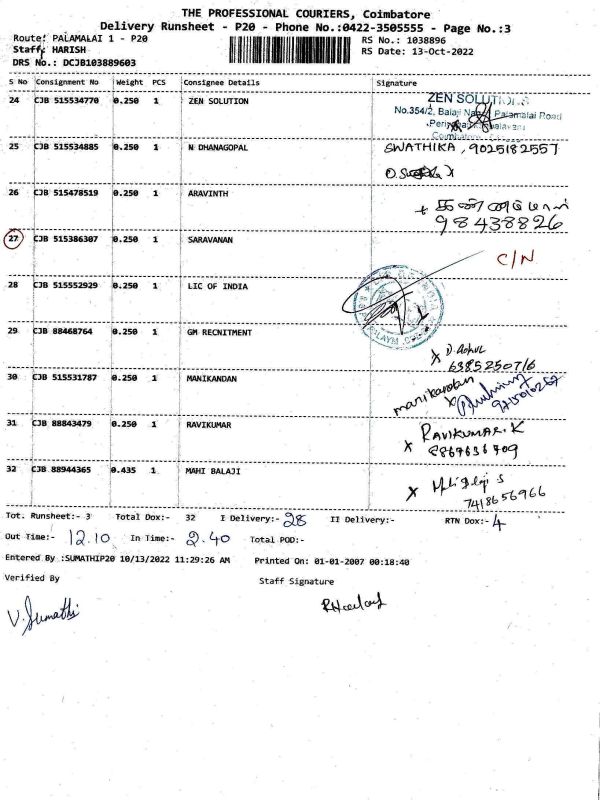 THE PROFESSIONAL COURIERS, Coimbatore
Delivery Runsheet - P20 - Phone No.:0422-3505555 - Page No.:3
Route: PALAMALAI 1 - P20
RS No.: 1038896
Staff: HARISH
RS Date: 13-Oct-2022
DRS No.: DCJB103889603
S No Consignment No Weight PCS Consignee Details Signature
24 CJB 515534770 0.250 1 ZEN SOLUTION
ZEN SOLUTIONS
No.354/2, Balaji Palamalai Road
25 CJB 515534885 0.250 1 N DHANAGOPAL SWATHIKA, 9025182557
26 CJB 515478519 0.250 1 ARAVINTH
98438826
27 CJB 515386307 0.250 1 SARAVANAN C/N
28 CJB 515552929 0.250 1 LIC OF INDIA
29 CJB 88468764 0.250 1 GM RECNITMENT
30 CJB 515531787 0.250 1 MANIKANDAN manikandan
31 CJB 88843479 0.250 1 RAVIKUMAR RAVIKUMAR.K
32 CJB 88944365 0.435 1 MAHI BALAJI
7418656966
Tot. Runsheet:- 3 Total Dox:- 32 I Delivery:- 28 II Delivery:- RTN Dox:- 4
Out Time:- 12.10 In Time:- 2.40 Total POD:-
Entered By :SUMATHIP20 10/13/2022 11:29:26 AM Printed On: 01-01-2007 00:18:40
Verified By Staff Signature
V. Sumathi